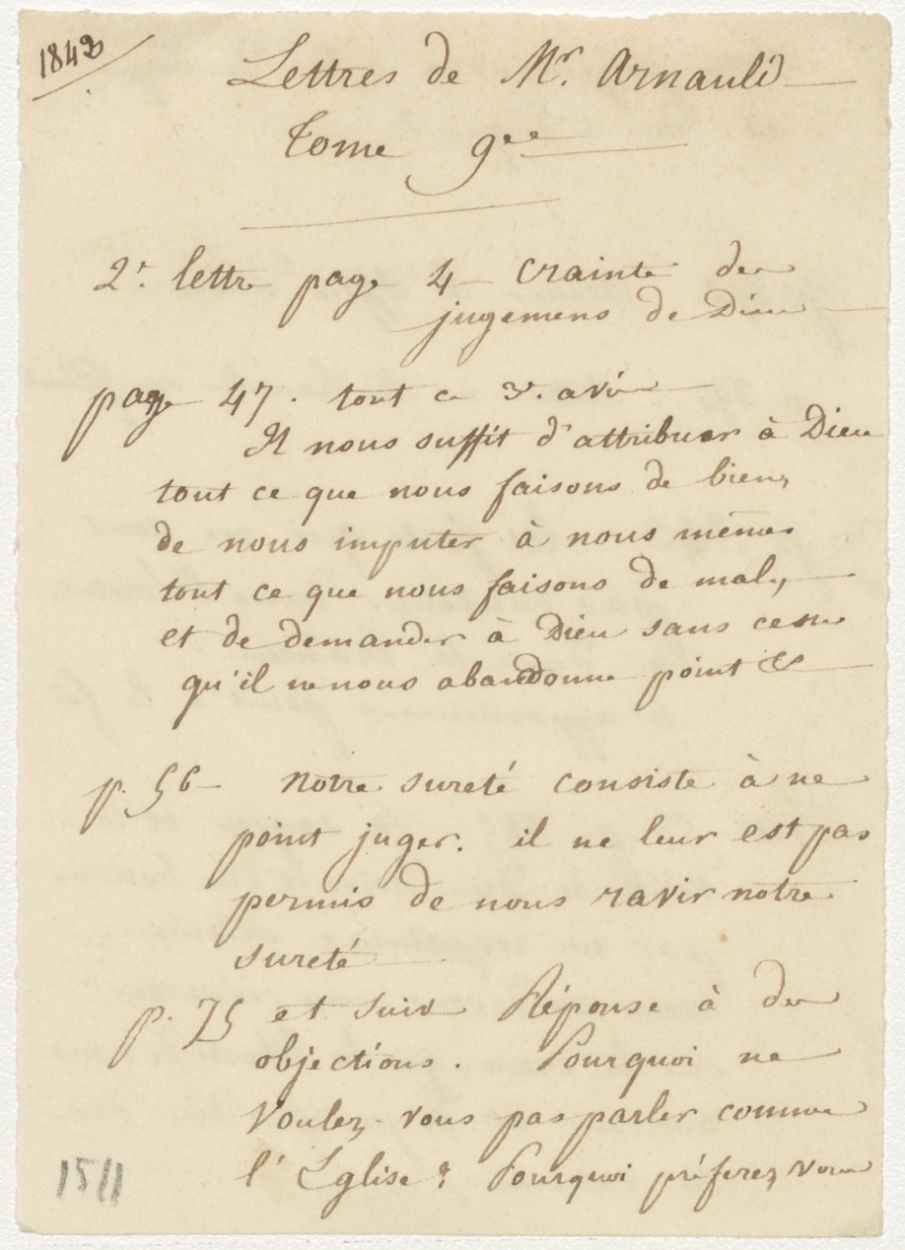 1843
Lettres de Mr. Arnauld
Tome 9ee
2e. lettre page 4 - crainte des
jugemens de Dieu
page 47. tout ce 3e. avis
Il nous suffit d'attribuer à Dieu
tout ce que nous faisons de bien,
de nous imputer à nous mêmes
tout ce que nous faisons de mal,
et de demander à Dieu sans cesse
qu'il ne nous abandonne point &
p. 56 - notre sureté consiste à ne
point juger. il ne leur est pas
permis de nous ravir notre
sureté
p. 75 et suiv Réponse à des
objections. Pourquoi ne
voulez-vous pas parler comme
l'Eglise? Pourquoi préferez vous
1511